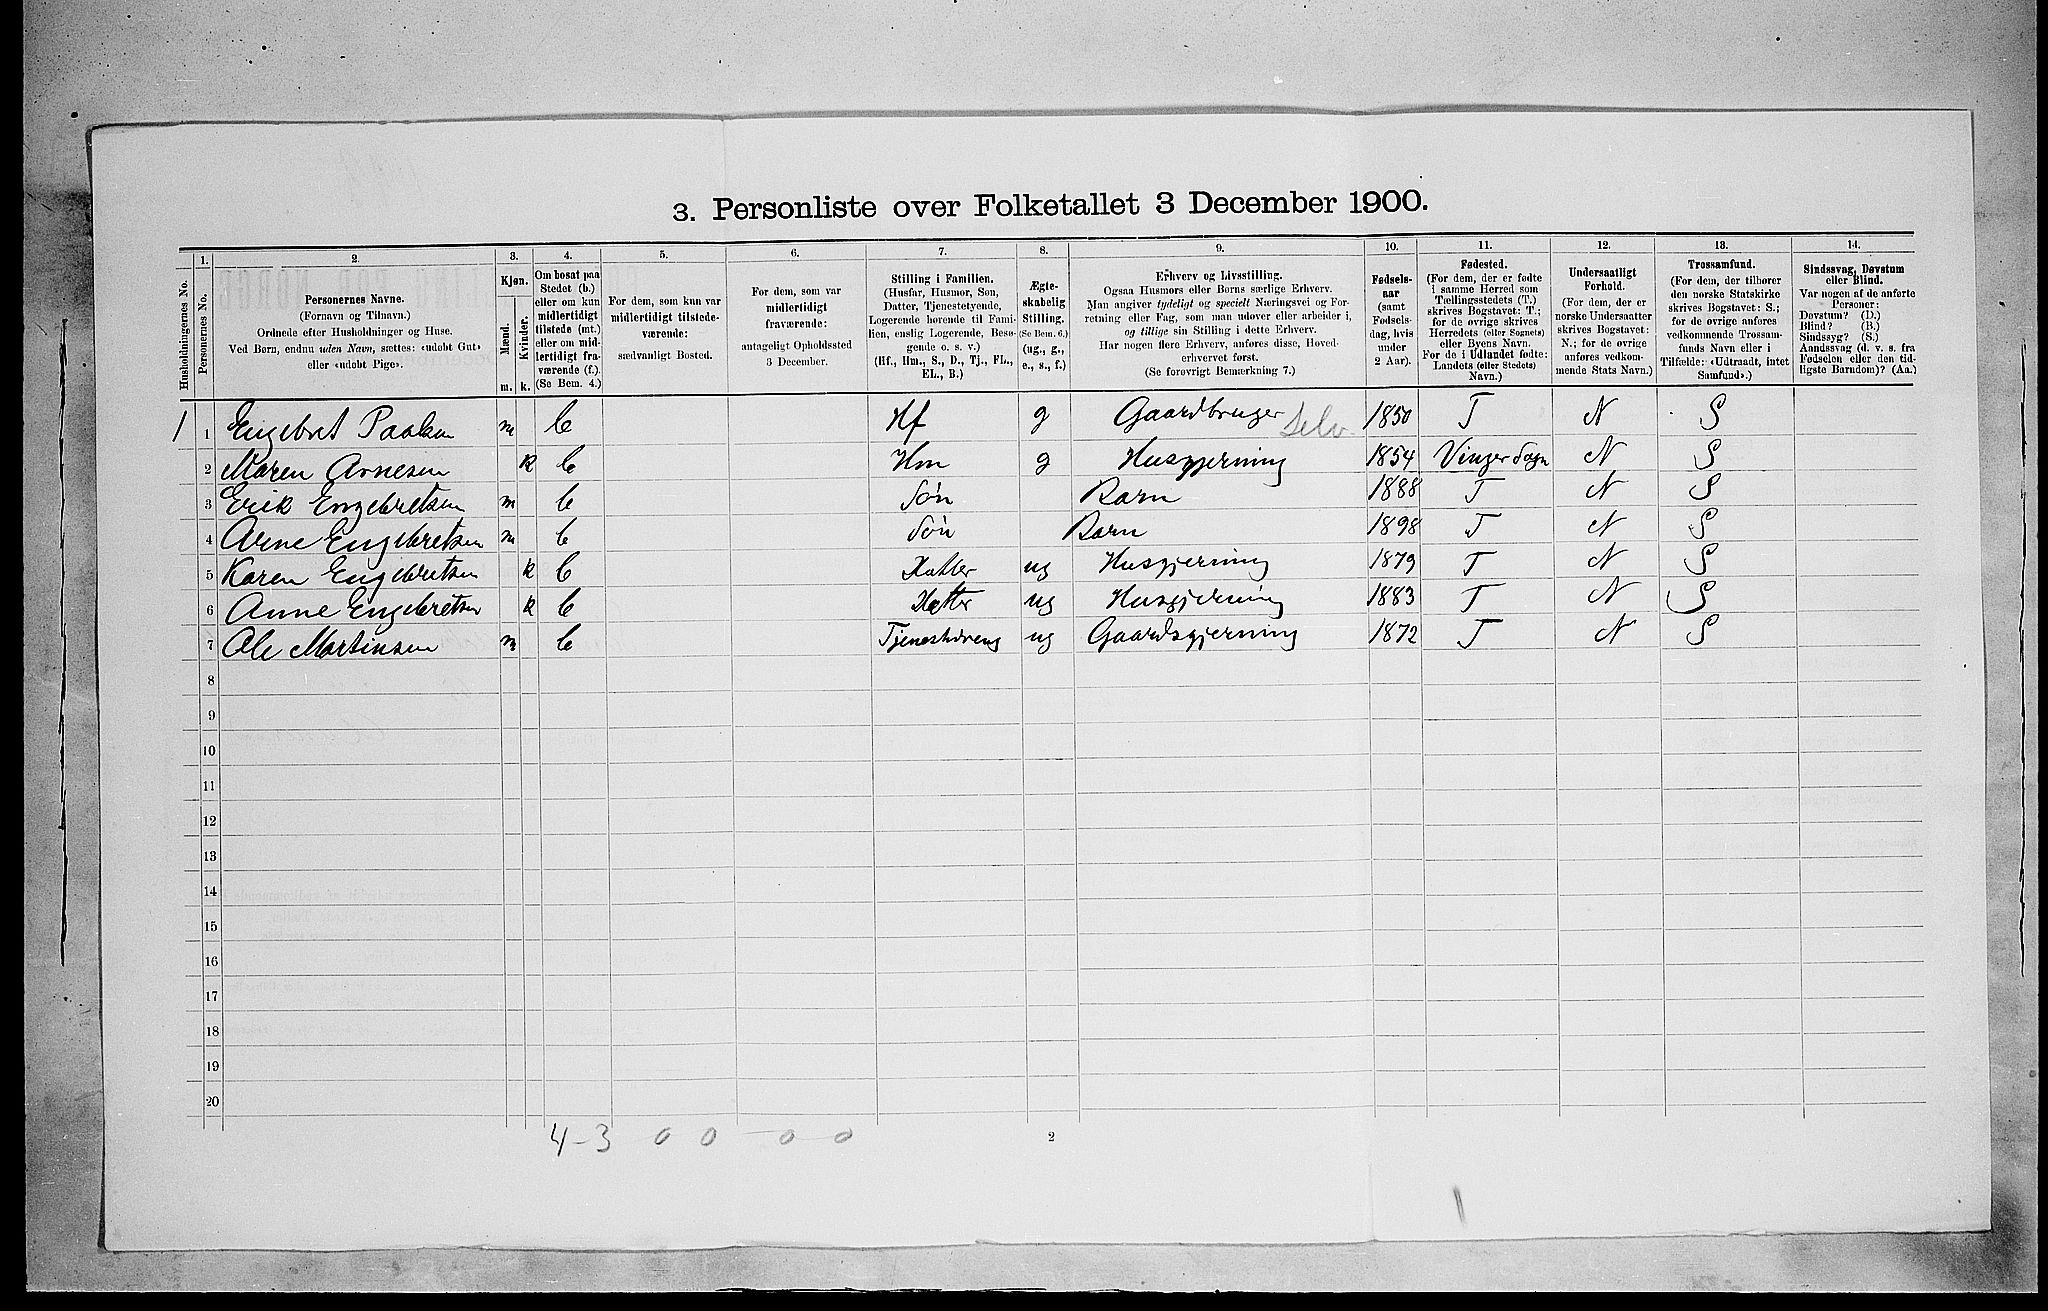 3. Personliste over Folketallet 3 December 1900.
1. 2. 3. 4. 5. 6. 7. 8. 9. 10. 11. 12. 13. 14.
Husholdningernes No.
Personernes No.
Personernes Navne.
(Fornavn og Tilnavn.)
Ordnede efter Husholdninger og Huse.
Ved Børn, endnu uden Navn, sættes: «udøbt Gut»
eller «udøbt Pige».
Kjøn.
Mænd.
Kvinder.
m. k.
Om bosat paa
Stedet (b.)
eller om kun
midlertidigt
tilstede (mt.)
eller om mid-
lertidigt fra-
værende (f.).
(Se Bem. 4.)
For dem, som kun var
midlertidigt tilstede-
værende:
sædvanligt Bosted.
For dem, som var
midlertidigt
fraværende:
antageligt Opholdssted
3 December.
Stilling i Familien.
(Husfar, Husmor, Søn,
Datter, Tjenestetyende,
Logerende hørende til Fami-
lien, enslig Logerende, Besø-
gende o. s. v.)
(Hf., Hm., S., D., Tj., FL.,
EL., B.)
Ægte-
skabelig
Stilling.
(Se Bem. 6.)
(ug., g.,
e., s., f.)
Erhverv og Livsstilling.
Ogsaa Husmors eller Børns særlige Erhverv.
Man angiver tydeligt og specielt Næringsvei og For-
retning eller Fag, som man udøver eller arbeider i,
og tillige sin Stilling i dette Erhverv.
Har nogen flere Erhverv, anføres disse, Hoved-
erhvervet først.
(Se forøvrigt Bemærkning 7.)
Fødsels-
aar
(samt
Fødsels-
dag, hvis
under
2 Aar).
Fødested.
(For dem, der er fødte
i samme Herred som
Tællingsstedets (T.)
skrives Bogstavet: T.;
for de øvrige skrives
Herredets (eller Sognets)
eller Byens Navn.
For de i Udlandet fødte:
Landets (eller Stedets)
Navn.)
Undersaatligt
Forhold.
(For dem, der er
norske Undersaatter
skrives Bogstavet:
N.; for de øvrige
anføres vedkom-
mende Stats Navn.)
Trossamfund.
(For dem, der tilhører
den norske Statskirke
skrives Bogstavet: S.;
for de øvrige anføres
vedkommende Trossam-
funds Navn eller i
Tilfælde: «Udtraadt, intet
Samfund».)
Sindssvag, Døvstum
eller Blind.
Var nogen af de anførte
Personer:
Døvstum? (D.)
Blind? (B.)
Sindssyg? (S.)
Aandssvag (d. v. s. fra
Fødselen eller den tid-
ligste Barndom)? (Aa.)
1 1 Engebret Paalsen m b Hf g Gaardbruger Selv 1850 T N S
2 Maren Arnesen k b Hm g Husgjerning 1854 Vinger Sogn N S
3 Erik Engebretsen m b Søn Barn 1888 T N S
4 Arne Engebretsen m b Søn Barn 1898 T N S
5 Karen Engebretsen k b Datter ug Husgjerning 1879 T N S
6 Anne Engebretsen k b Datter ug Husgjerning 1883 T N S
7 Ole Martinsen m b Tjenestdreng ug Gaardsgjerning 1872 T N S
8
9
10
11
12
13
14
15
16
17
18
19
20
4-3 0 0 - 0 0
2